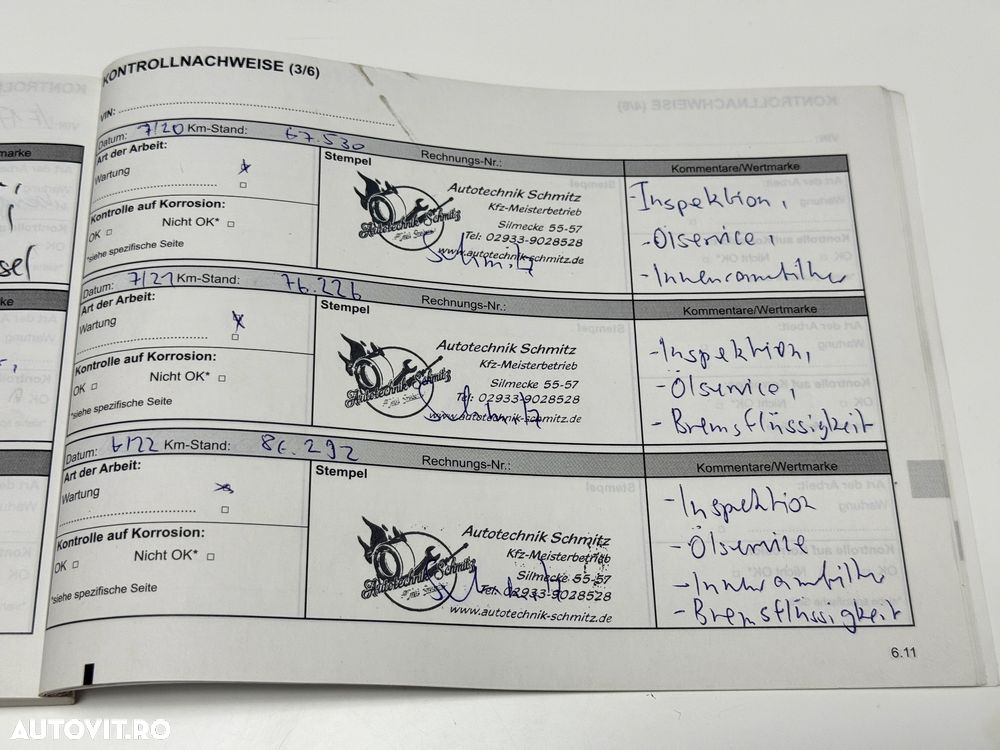 KONTROLLNACHWEISE (3/6)
VIN:
Datum: 7/20 Km-Stand: 67.530
Rechnungs-Nr.:
Kommentare/Wertmarke
Art der Arbeit:
Wartung
Kontrolle auf Korrosion:
OK Nicht OK*
*siehe spezifische Seite
Stempel
Autotechnik Schmitz
Kfz-Meisterbetrieb
Silmecke 55-57
Tel: 02933-9028528
www.autotechnik-schmitz.de
Autotechnik Schmitz
Schmitz
- Inspektion,
- Ölservice,
- Innenraumfilter
Datum: 7/21 Km-Stand: 76.226
Rechnungs-Nr.:
Kommentare/Wertmarke
Art der Arbeit:
Wartung
Kontrolle auf Korrosion:
OK Nicht OK*
*siehe spezifische Seite
Stempel
Autotechnik Schmitz
Kfz-Meisterbetrieb
Silmecke 55-57
Tel: 02933-9028528
www.autotechnik-schmitz.de
Autotechnik Schmitz
Schmitz
- Inspektion,
- Ölservice,
- Bremsflüssigkeit
Datum: 6/22 Km-Stand: 86.292
Rechnungs-Nr.:
Kommentare/Wertmarke
Art der Arbeit:
Wartung
Kontrolle auf Korrosion:
OK Nicht OK*
*siehe spezifische Seite
Stempel
Autotechnik Schmitz
Kfz-Meisterbetrieb
Silmecke 55-57
Tel: 02933-9028528
www.autotechnik-schmitz.de
Autotechnik Schmitz
- Inspektion
- Ölservice
- Innenraumfilter
- Bremsflüssigkeit
6.11
AUTOVIT.RO